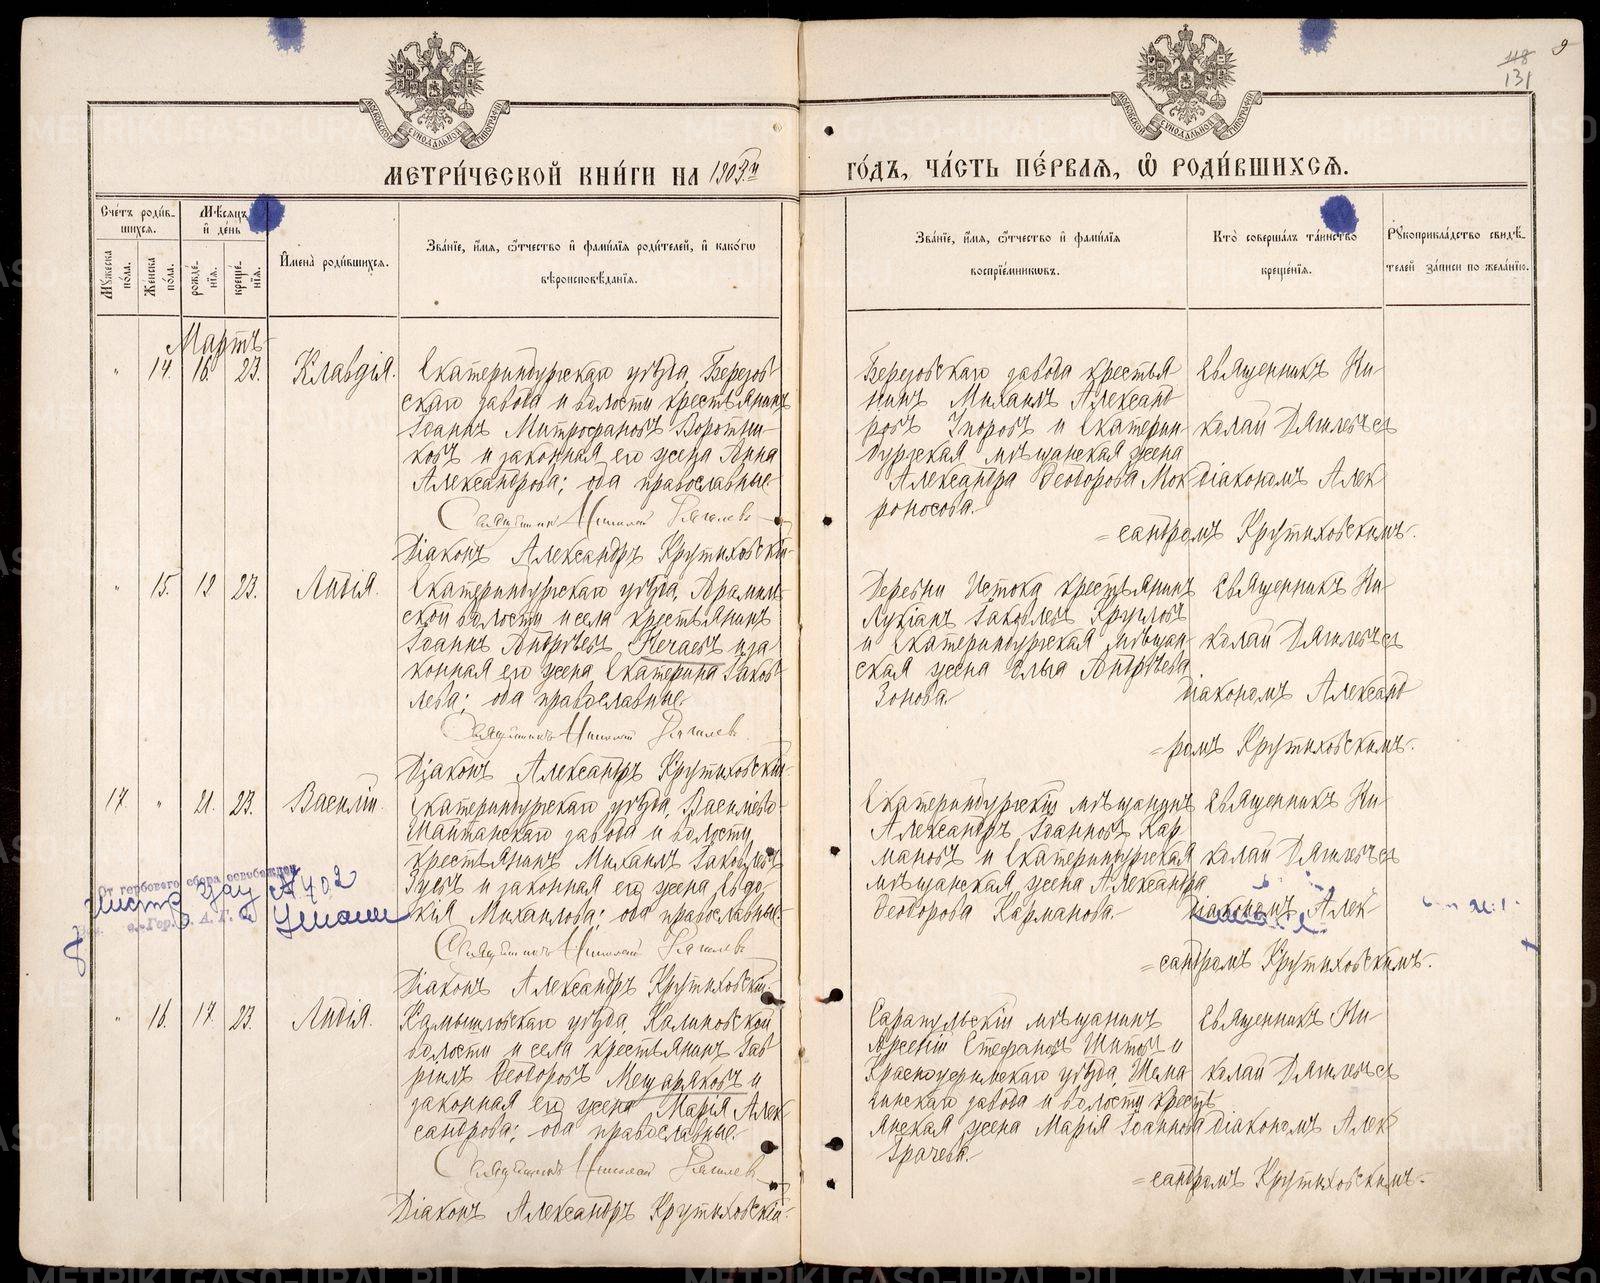 118
131
9
МЕТРИ́ЧЕСКОЙ КНИ́ГИ НА 1903.й
ГО́ДЪ, ЧА́СТЬ ПЕ́РВАЯ, Ѡ РОДИ́ВШИХСЯ.
Счетъ родившихся.
Мужеска пола.
Женска пола.
Мѣсяцъ и день
рожденія.
крещенія.
Имена родившихся.
Званіе, имя, отчество и фамилія родителей, и какого
вѣроисповѣданія.
Званіе, имя, отчество и фамилія
воспріемниковъ.
Кто совершалъ таинство
крещенія.
Рукоприкладство свидѣтелей записи по желанію.
Мартъ
" 14. 16. 23. Клавдія.
Екатеринбургскаго уѣзда, Березов
скаго завода и волости крестьянинъ
Іоаннъ Митрофановъ Воротни-
ковъ и законная его жена Анна
Александрова; оба православные
Священникъ Николай Дягилевъ
Діаконъ Александръ Крутиховскій
Березовскаго завода крестья
нинъ Михаилъ Александ
ровъ и Екатерин
бургская мѣщанская жена
Александра Ѳеодорова Мок
роносова.
Священникъ Ни-
колай Дягилевъ съ
діакономъ Алек
=сандромъ Крутиховскимъ.
" 15. 19 23. Лидія.
Екатеринбургскаго уѣзда, Арамиль-
ской волости и села крестьянинъ
Іоаннъ Андреевъ Нечаевъ и за
конная его жена Екатерина Іаков
лева; оба православные.
Священникъ Николай Дягилевъ
Діаконъ Александръ Крутиховскій
Деревни Истока крестьянинъ
Лукіанъ Іаковлевъ Кругловъ
и Екатеринбургская мѣщан
ская жена Ольга Андреева
Зонова.
Священникъ Ни-
колай Дягилевъ съ
діакономъ Александ
=ромъ Крутиховскимъ.
17. " 21. 23. Василій.
Екатеринбургскаго уѣзда, Васильево-
Шайтанскаго завода и волости,
крестьянинъ Михаилъ Іаковлевъ
Зуевъ и законная его жена Евдо-
кія Михаилова; оба православные.
Священникъ Николай Дягилевъ
Діаконъ Александръ Крутиховскій
Екатеринбургскій мѣщанинъ
Александръ Іоанновъ Кар
мановъ и Екатеринбургская
мѣщанская жена Александра
Ѳеодорова Карманова.
Священникъ Ни-
колай Дягилевъ съ
діакономъ Алек
=сандромъ Крутиховскимъ.
От гербового сбора освобожден
" 16. 17. 23. Лидія.
Камышловскаго уѣзда, Калиновской
волости и села крестьянинъ Гав
ріилъ Ѳеодоровъ Мещаряковъ и
законная его жена Марія Алек
сандрова; оба православные.
Священникъ Николай Дягилевъ
Діаконъ Александръ Крутиховскій.
Сарапульскій мѣщанинъ
Арсеній Стефановъ Шитовъ и
Красноуфимскаго уѣзда, Шема
хинскаго завода и волости кресть
янская жена Марія Іоаннова
Грачева.
Священникъ Ни-
колай Дягилевъ съ
діакономъ Алек
=сандромъ Крутиховскимъ.
METRIKI.GASO-URAL.RU